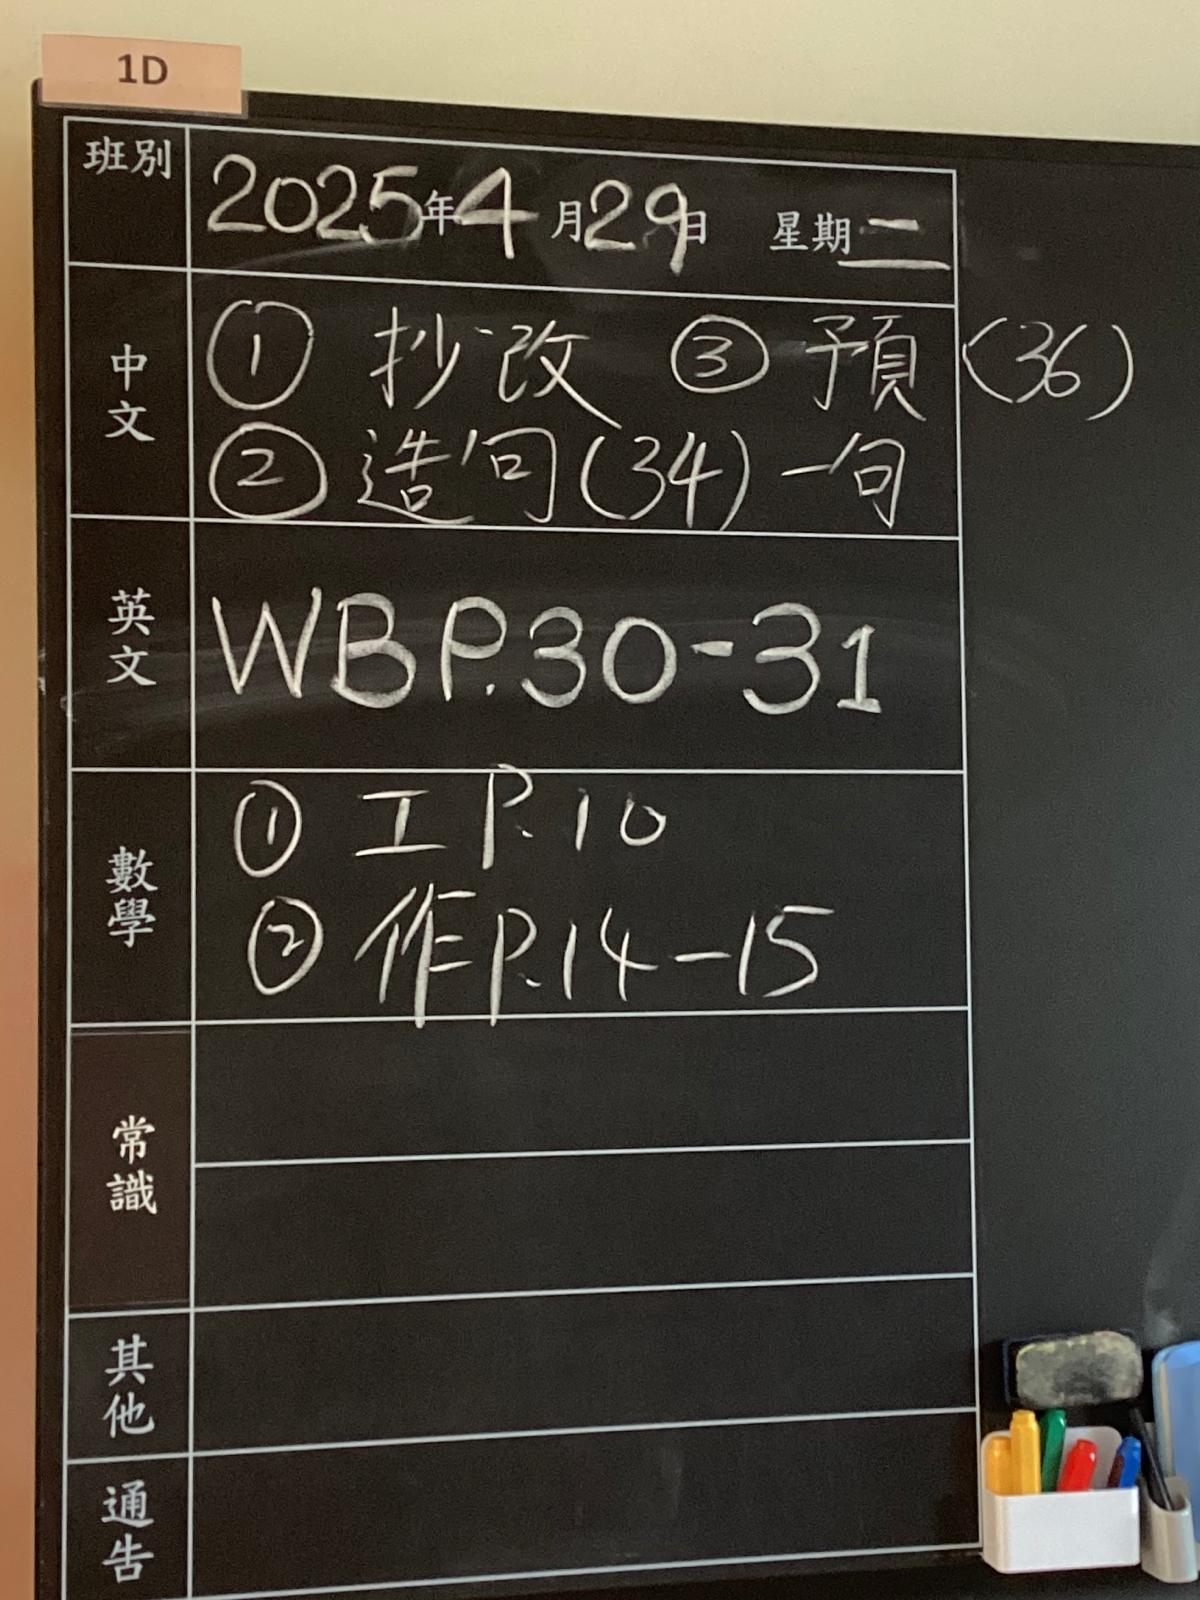 1D
班別 2025年4月29日 星期二
中文 ① 抄改 ③ 預(36)
② 造句(34)一句
英文 WB P.30-31
數學 ① 工 P.10
② 作 P.14-15
常識
其他
通告